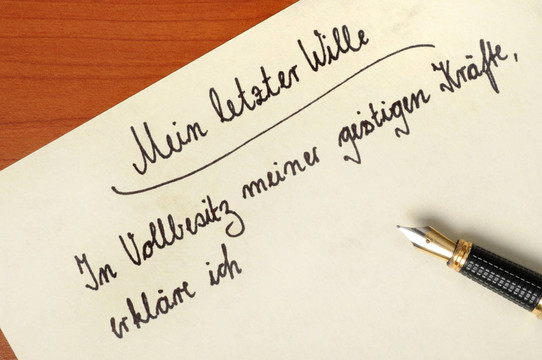 Mein letzter Wille
In Vollbesitz meiner geistigen Kräfte,
erkläre ich